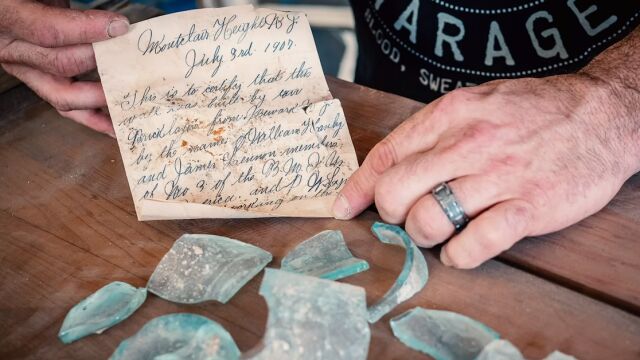 Montclair Heights N J
July 3rd. 1907.
"This is to certify that this
wall was built by two
Bricklayers from Newark N. J
by the names of William Hanly
and James Lennon members
of No 3 of the B. M. & P
and
working on the
GARAGE
BLOOD, SWEAT